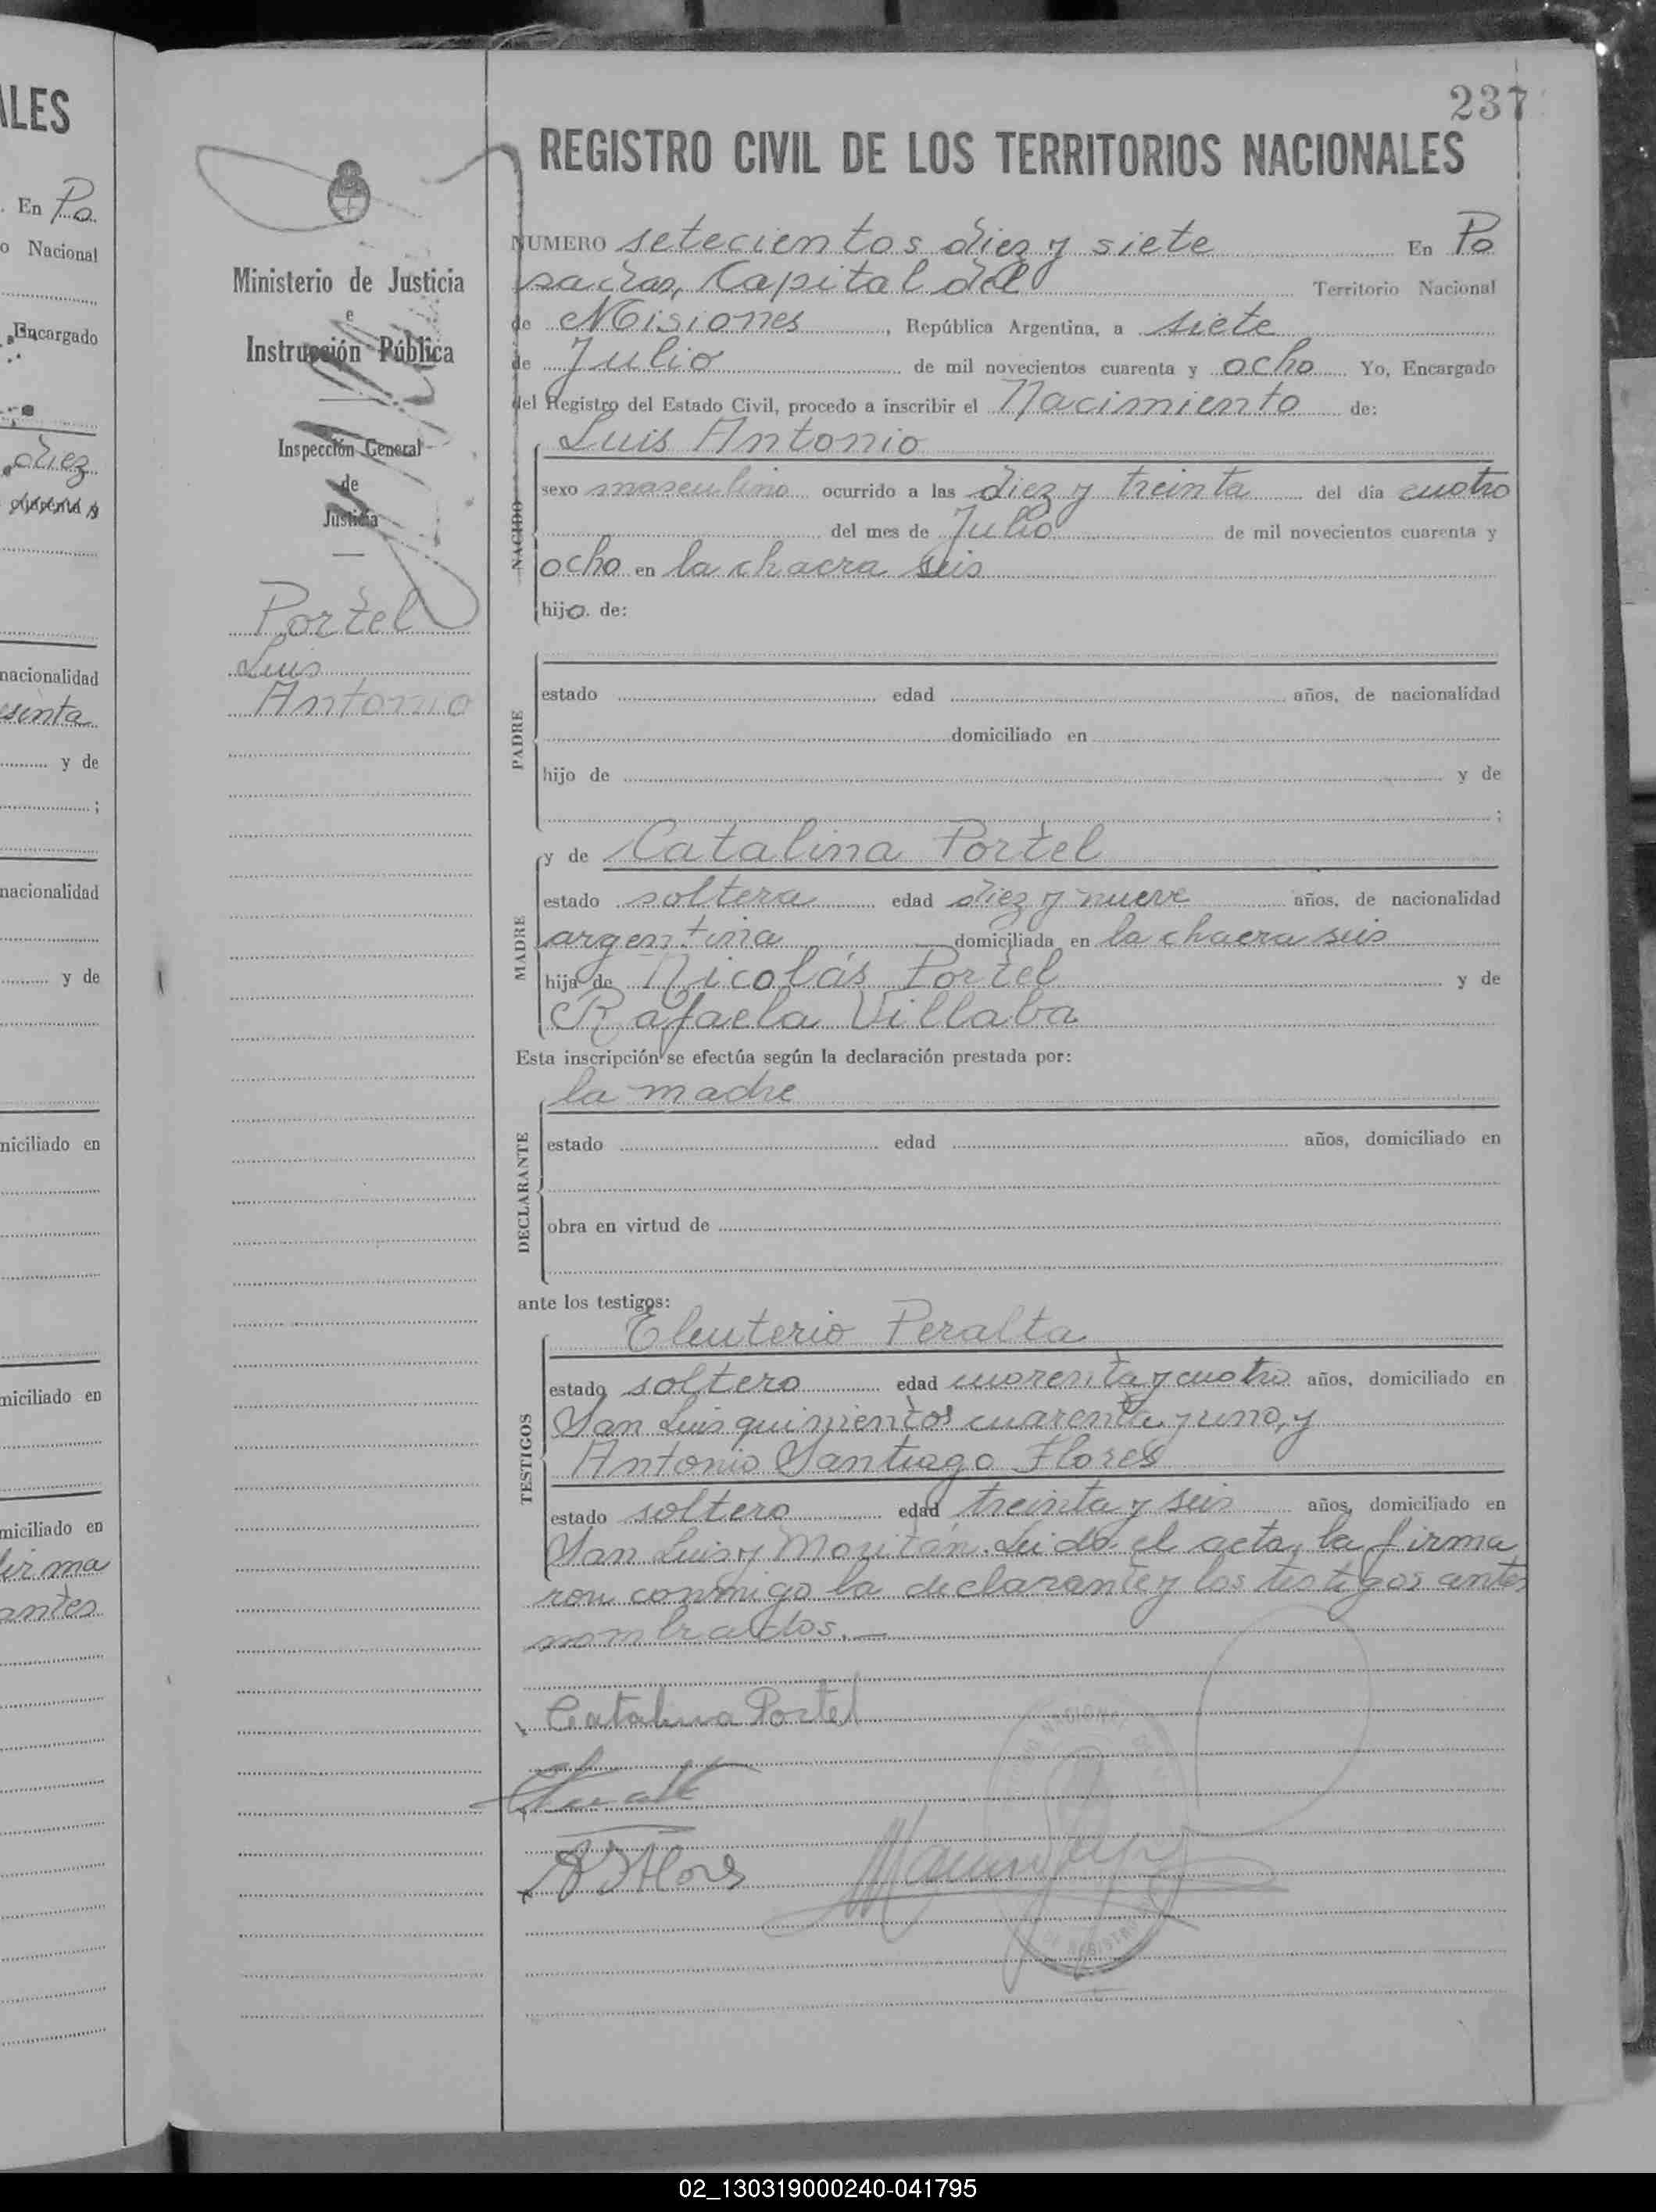 ALES
En Po
o Nacional
Encargado
diez
nacionalidad
senta
y de
;
nacionalidad
y de
miciliado en
miciliado en
miciliado en
firma
antes
Ministerio de Justicia
e
Instrucción Pública
Inspección General
de
Justicia
Portel
Luis
Antonio
237
REGISTRO CIVIL DE LOS TERRITORIOS NACIONALES
NUMERO setecientos diez y siete En Po
sadas, Capital del Territorio Nacional
de Misiones, República Argentina, a siete
de Julio de mil novecientos cuarenta y ocho Yo, Encargado
del Registro del Estado Civil, procedo a inscribir el Nacimiento de:
NACIDO
Luis Antonio
sexo masculino ocurrido a las diez y treinta del día cuatro
del mes de Julio de mil novecientos cuarenta y
ocho en la chacra seis
hijo de:
PADRE
estado edad años, de nacionalidad
domiciliado en
hijo de y de
;
MADRE
y de Catalina Portel
estado soltera edad diez y nueve años, de nacionalidad
argentina domiciliada en la chacra seis
hija de Nicolás Portel y de
Rafaela Villaba
Esta inscripción se efectúa según la declaración prestada por:
DECLARANTE
la madre
estado edad años, domiciliado en
obra en virtud de
ante los testigos:
TESTIGOS
Eleuterio Peralta
estado soltero edad cuarenta y cuatro años, domiciliado en
San Luis quinientos cuarenta y uno, y
Antonio Santiago Flores
estado soltero edad treinta y seis años, domiciliado en
San Luis y Moritán. Leida el acta, la firma
ron conmigo la declarante y los testigos antes
nombrados.—
Catalina Portel
02_130319000240-041795